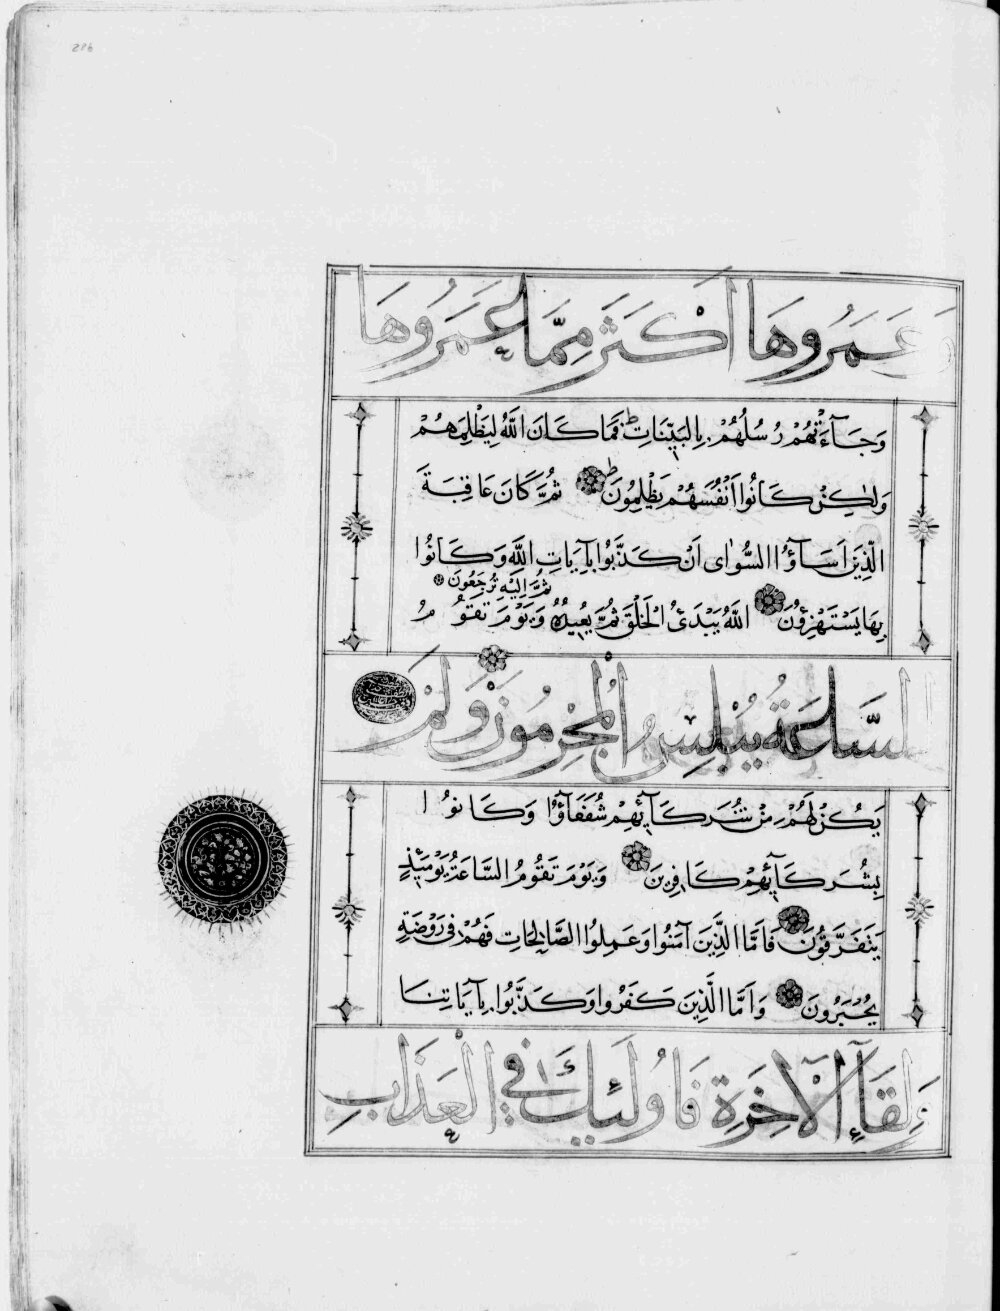 296
وَعَمَرُوهَا أَكْثَرَ مِمَّا عَمَرُوهَا
وَجَآءَتْهُمْ رُسُلُهُمْ بِالْبَيِّنَاتِ ط فَمَا كَانَ اللَّهُ لِيَظْلِمَهُمْ
وَلٰكِنْ كَانُوا أَنْفُسَهُمْ يَظْلِمُونَ ط ثُمَّ كَانَ عَاقِبَةَ
الَّذِينَ اَسَاؤُا السُّواٰى اَنْ كَذَّبُوا بِآيَاتِ اللَّهِ وَكَانُوا
ثُمَّ اِلَيْهِ تُرْجَعُونَ
بِهَا يَسْتَهْزِؤُنَ اللَّهُ يَبْدَئُ الْخَلْقَ ثُمَّ يُعِيدُهُ وَيَوْمَ تَقُومُ
السَّاعَةُ يُبْلِسُ الْمُجْرِمُونَ وَلَمْ
يَكُنْ لَهُمْ مِنْ شُرَكَآئِهِمْ شُفَعَآؤُا وَكَانُوا
بِشُرَكَآئِهِمْ كَافِرِينَ وَيَوْمَ تَقُومُ السَّاعَةُ يَوْمَئِذٍ
يَتَفَرَّقُونَ فَاَمَّا الَّذِينَ آمَنُوا وَعَمِلُوا الصَّالِحَاتِ فَهُمْ فِى رَوْضَةٍ
يُحْبَرُونَ وَاَمَّا الَّذِينَ كَفَرُوا وَكَذَّبُوا بِآيَاتِنَا
وَلِقَآءِ الْآخِرَةِ فَاُولَئِكَ فِي الْعَذَابِ